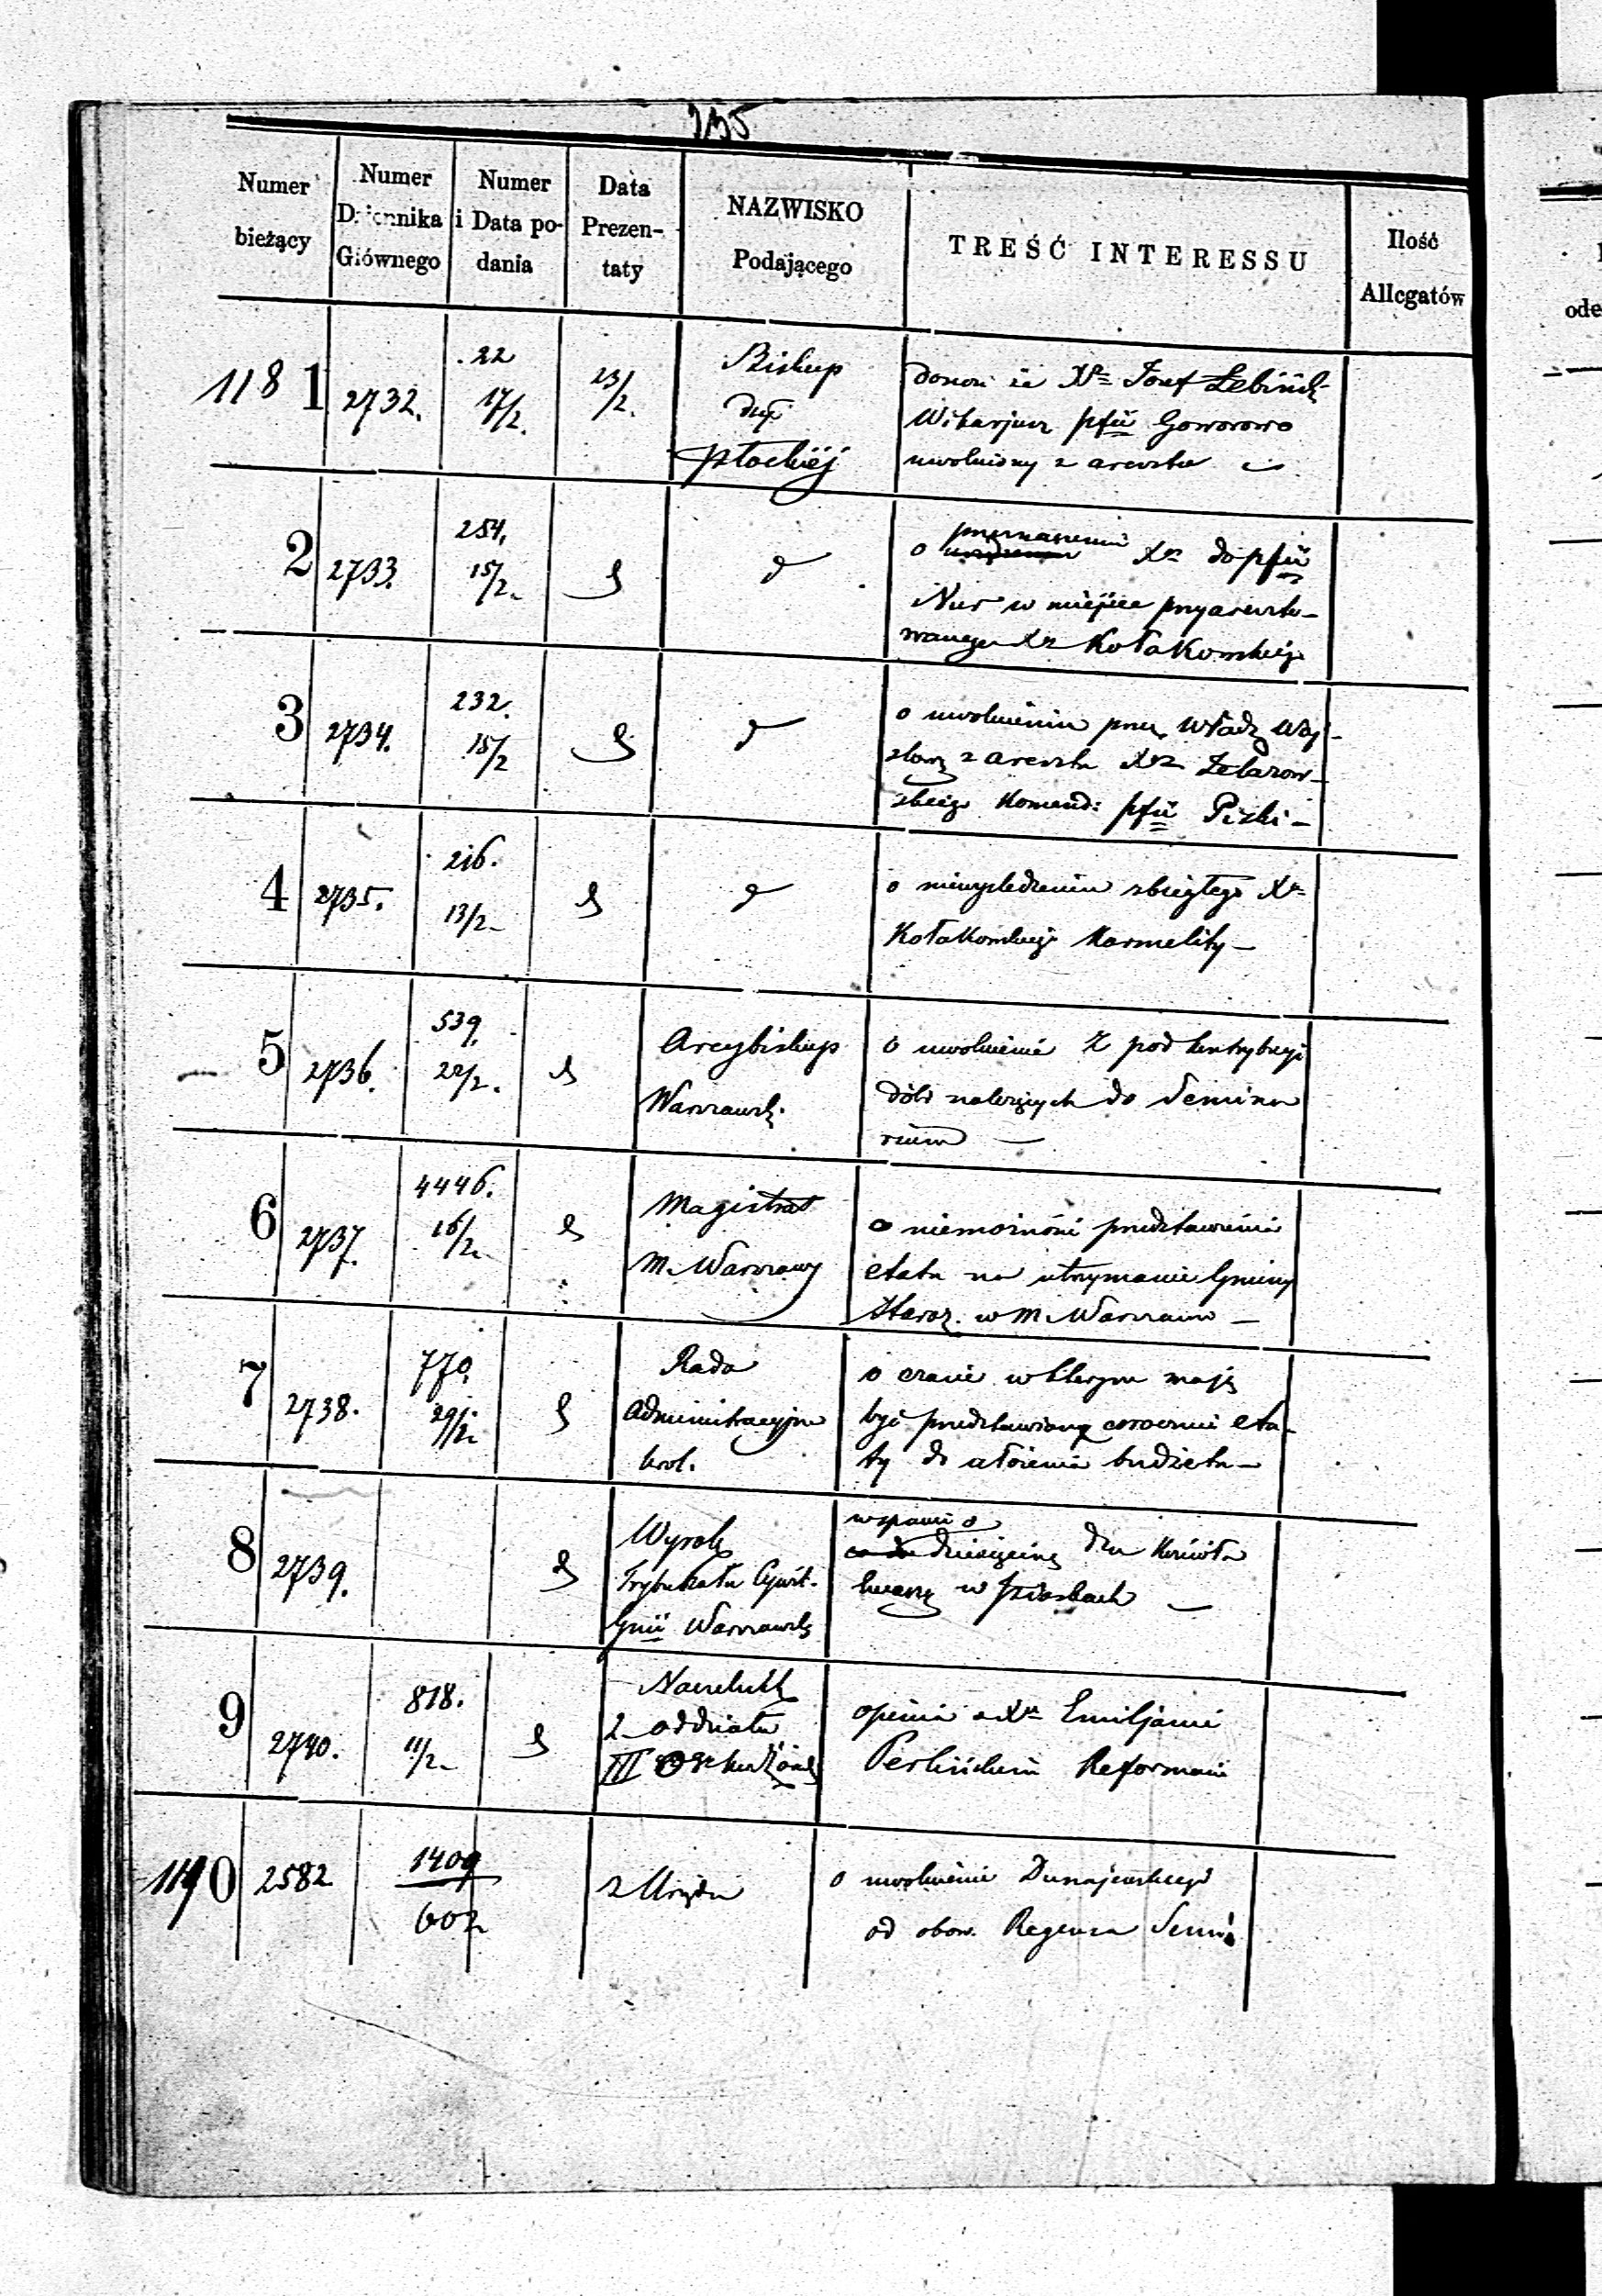 Numer bieżący
Numer Dziennika Głównego
Numer i Data podania
Data Prezentaty
NAZWISKO Podającego
TREŚĆ INTERESSU
Ilość Allegatów
1181
2732.
22
17/2.
23/2.
Biskup
dyec
Płockiéj
donosi że Xdz Józef Łebińsk
Wikarjusz pfii Goworowo
uwolniony z aresztu
2
2733.
254.
15/2.
d
o przeznaczeniu Xa do pfii
Nur w miejsce przyareszto-
wanego Xa Kołakowskiego
3
2734.
232.
15/2
d
o uwolnieniu przez Władzę Woj-
skową z aresztu Xa Żelazow-
skiego Komend: pfii Piski –
4
2735.
216.
13/2
d
o niewyśledzeniu zbiegłego Xa
Kołakowskiego Karmelity –
5
2736.
539.
22/2.
Arcybiskup
Warszawsk.
o uwolnienie z pod kontrybucyi
dóbr należących do Semina
rium –
6
2737.
4446.
16/2.
Magistrat
M. Warszawy
o niemożności przedstawienia
etatu na utrzymanie Gminy
Staroz. w M. Warszawie –
7
2738.
770.
29/1.
Rada
Administracyjna
Król.
o czasie w którym mają
być przedstawiane corocznie eta-
ty do ułożenia budżetu –
8
2739.
Wyrok
Trybunału Cywil.
Gnii Warszawsk
w sprawie o
dziesięcinę dla Kościoła
w Piaskach –
9
2740.
818.
11/2.
Naczelnik
2 oddziału
III
opinia o Xu Emiljanie
Perlińskim Reformacie
1190
2582
1409
602
z Urzędu
o uwolnienie Dunajewskiego
od obow. Regensa Semi.